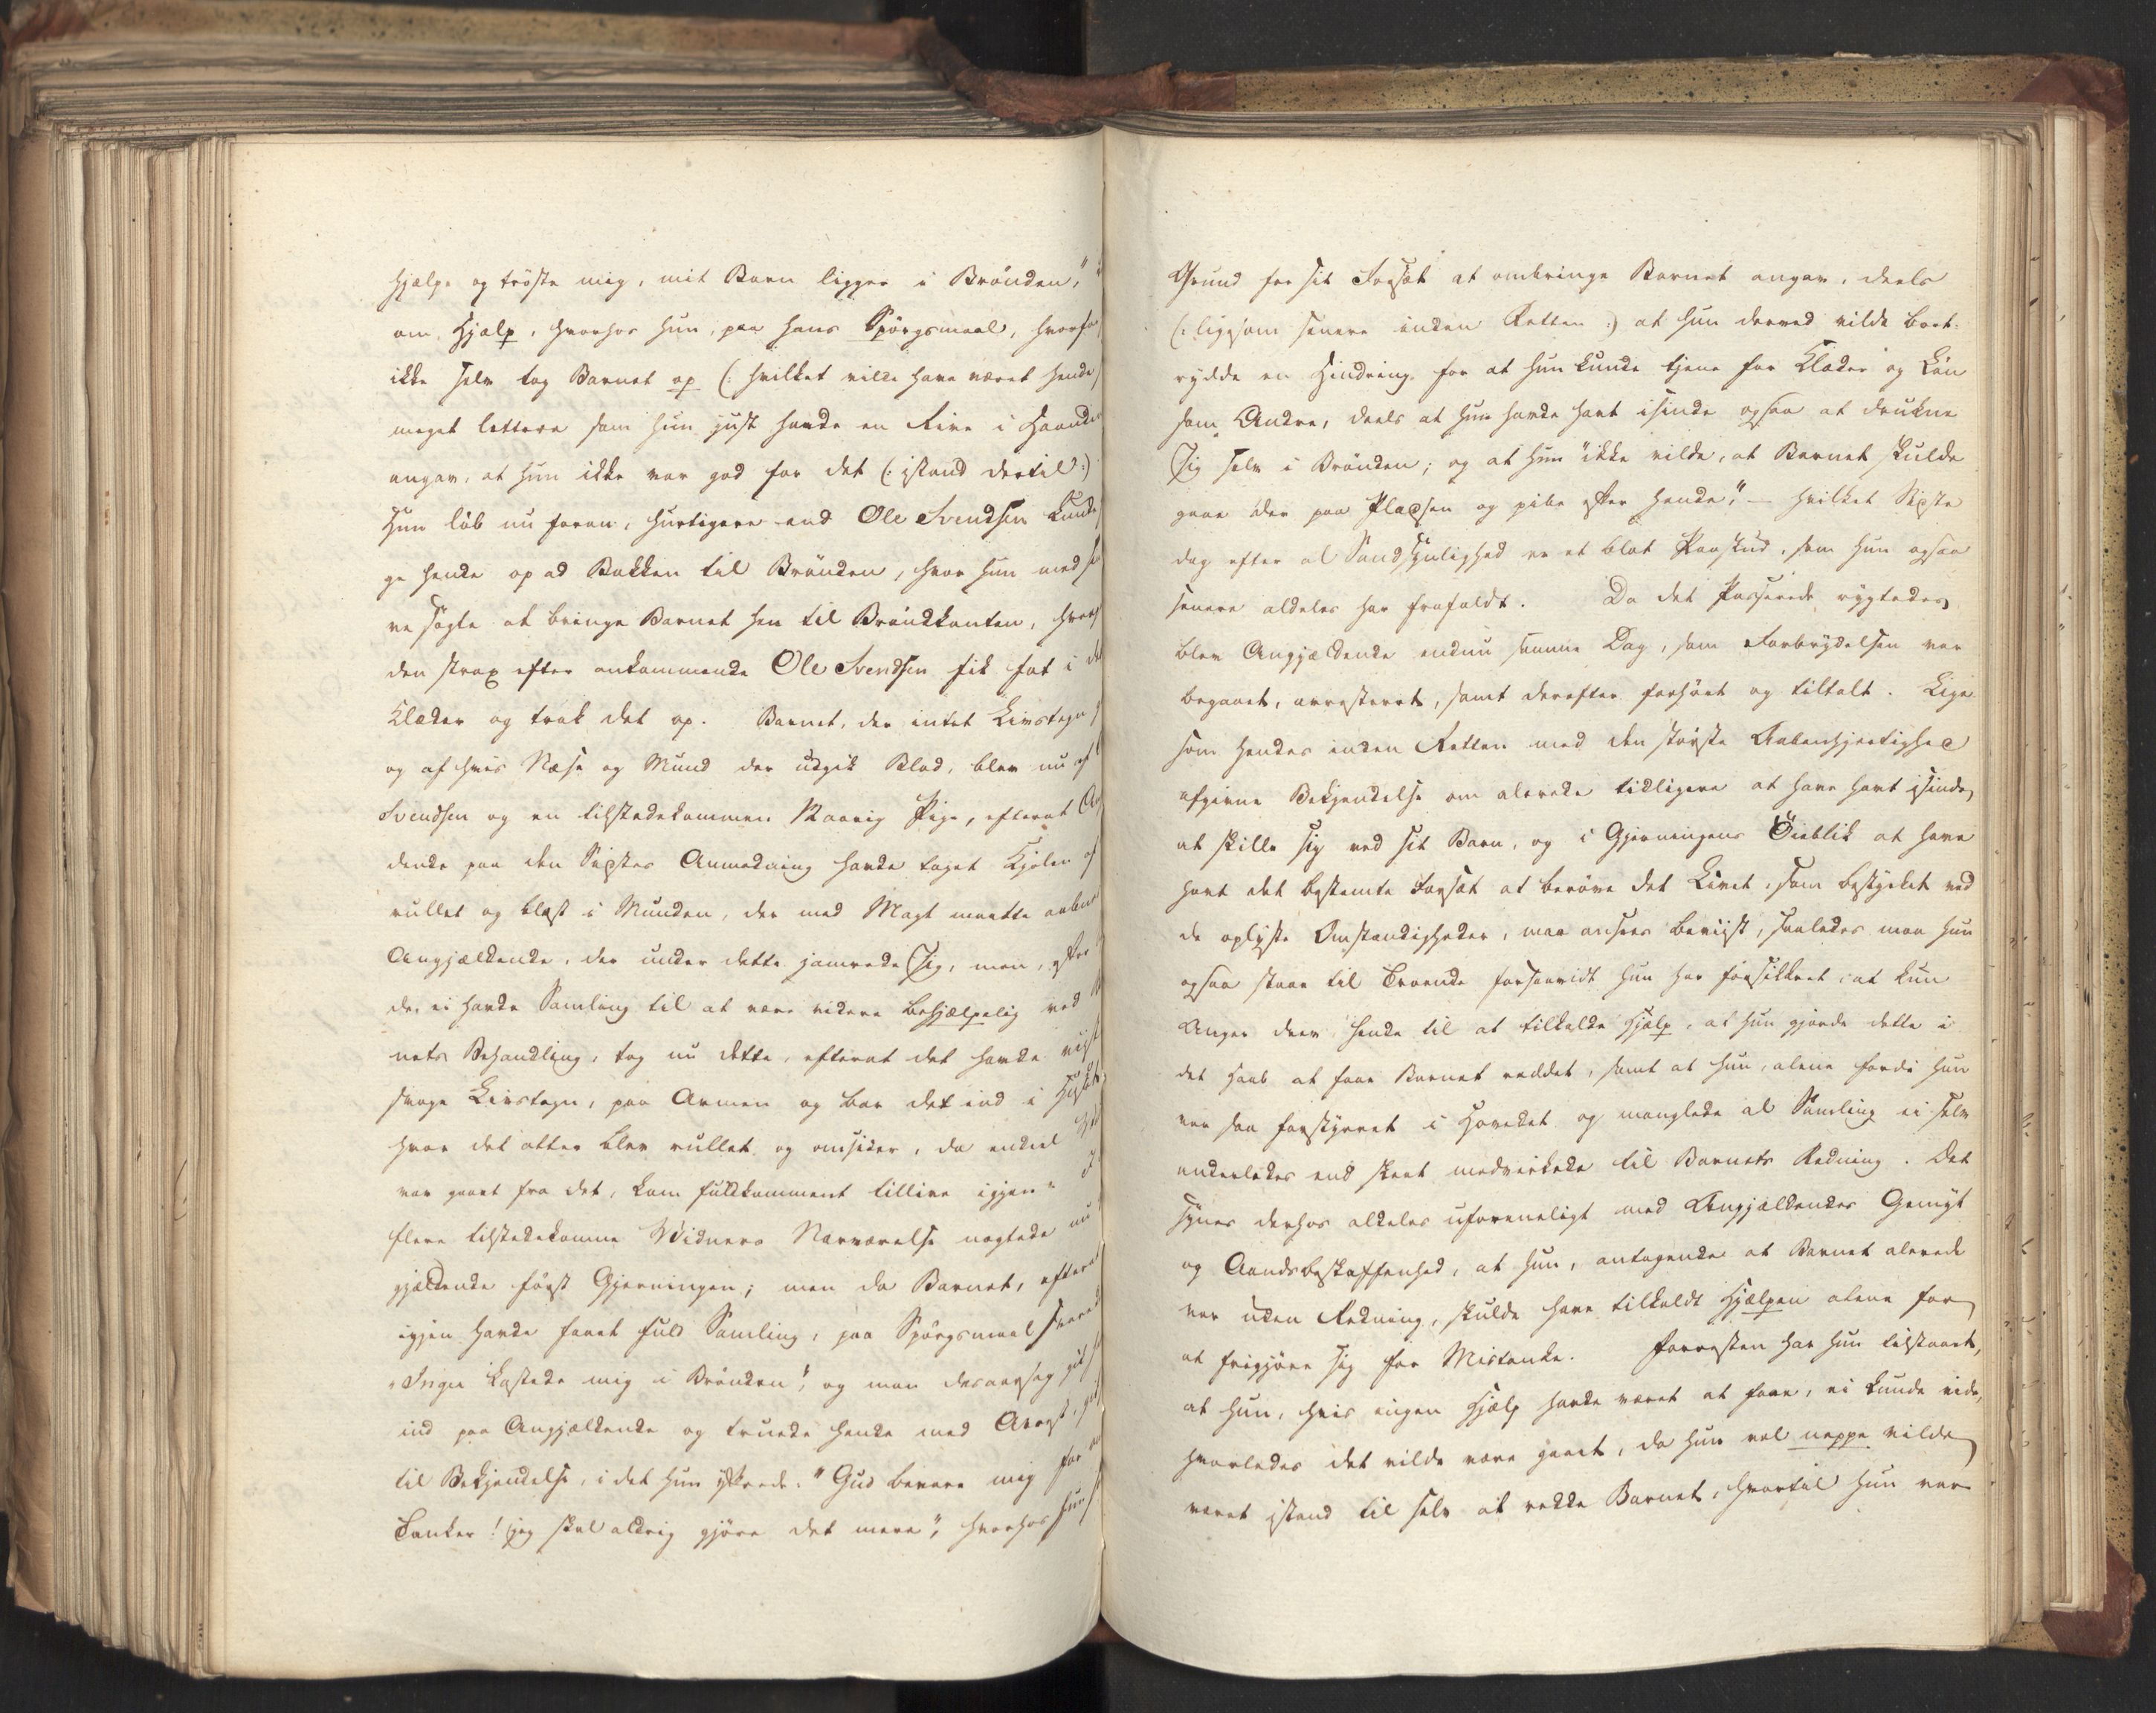 hjælpe og trøste mig, mit Barn ligger i Brønden,"
om Hjælp, hvorhos hun, paa hans Spørgsmaal, hvorfor
ikke selv tog Barnet op (: hvilket vilde have været hende
meget lettere som hun just havde en Rive i Haanden
angav, at hun ikke var god for det (: istand dertil:)
Hun løb nu foran, hurtigere end Ole Svendsen kunde
ge hende op ad Bakken til Brønden, hvor hun med
ve søgte at bringe Barnet hen til Brøndkanten, hvor
den strax efter ankommende Ole Svendsen fik fat i det
Klæder og trak det op. Barnet, der intet Livstegn
og af hvis Næse og Mund der udgik Blod, blev nu af
Svendsen og en tilstedekommen Pige, efterat An
dende paa den Sidstes Anmodning havde taget Kjolen af
rullet og blæst i Munden, der med Magt maatte aabne
Angjældende, der under dette jamrede Sig, men, efter
de, ei havde Samling til at være videre behjælpelig ved
nets Behandling, tog nu dette, efterat det havde vist
svage Livstegn, paa Armen og bar det ind i Huset
hvor det atter blev rullet og omsider, da endeel
var gaaet fra det, kom fuldkomment tillive igjen
flere tilstedekomne Vidners Nærværelse nægtede nu
gjældende først Gjerningen; men da Barnet, efterat
igjen havde faaet fuld Samling, paa Spørgsmaal svarede
"Inger kastede mig i Brønden", og man desaarsag gik
ind paa Angjældende og truede hende med Arrest, gik
til Bekjendelse, i det hun yttrede: "Gud bevare mig for
Tanker! jeg skal aldrig gjøre det mere", hvorhos hun
Grund for sit Forsæt at ombringe Barnet angav, deels
(: ligesom senere inden Retten :) at hun derved vilde bort-
rydde en Hindring for at hun kunde tjene for Klæder og Løn
som Andre, deels at hun havde havt isinde ogsaa at drukne
Sig selv i Brønden; og at hun "ikke vilde, at Barnet skulde
gaae der paa Pladsen og pibe efter hende", – hvilket Sidste
dog efter al Sandsynlighed er et blot Paaskud, som hun ogsaa
senere aldeles har frafaldt. Da det Passerede rygtedes
blev Angjældende endnu samme Dag, som Forbrydelsen var
begaaet, arresteret, samt derefter forhørt og tiltalt. Lige
som hendes inden Retten med den største Aabenhjertighed
afgivne Bekjendelse om allerede tidligere at have havt isinde
at skille sig ved sit Barn, og i Gjerningens Øieblik at have
havt det bestemte Forsæt at berøve det Livet, som bestyrket ved
de oplyste Omstændigheder, maa ansees beviist, saaledes maa hun
ogsaa staae til Troende forsaavidt hun har forsikkret, at kun
Anger drev hende til at tilkalde Hjælp, at hun gjorde dette i
det Haab at faae Barnet reddet, samt at hun, alene fordi hun
var saa forstyrret i Hovedet og manglede al Samling ei selv
anderledes end skeet medvirkede til Barnets Redning. Det
synes derhos aldeles uforeneligt med Angjældendes Gemyt
og Aandsbeskaffenhed, at hun, antagende at Barnet allerede
var uden Redning, skulde have tilkaldt Hjælpen alene for
at frigjøre sig for Mistanke. Forresten har hun tilstaaet,
at hun, hvis ingen Hjælp havde været at faae, ei kunde vide,
hvorledes det vilde være gaaet, da hun vel neppe vilde
været istand til selv at redde Barnet, hvortil hun var